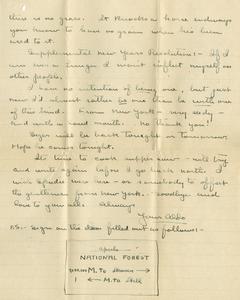 there is no grass. It knocks a horse endways
you know to have no grass when he's been
used to it.
Supplemental new Years Resolution:- If I
was a singer I won't inflict myself on
other people.
I have no intention of being one, but just
now I'd almost rather be one than be with one
of this kind. From New York - very seedy -
and with a loud mouth. No thank you!
will be back tonight or tomorrow.
Hope he comes tonight.
Its time to cook supper now - will try
and write again before I go back north. I
wish were me - or somebody to offset
the gentleman from new york. Goodbye and
love to you all always
Yours
P.S. - sign on the door filled out as follows:-
NATIONAL FOREST
M. To
1 ← M. To